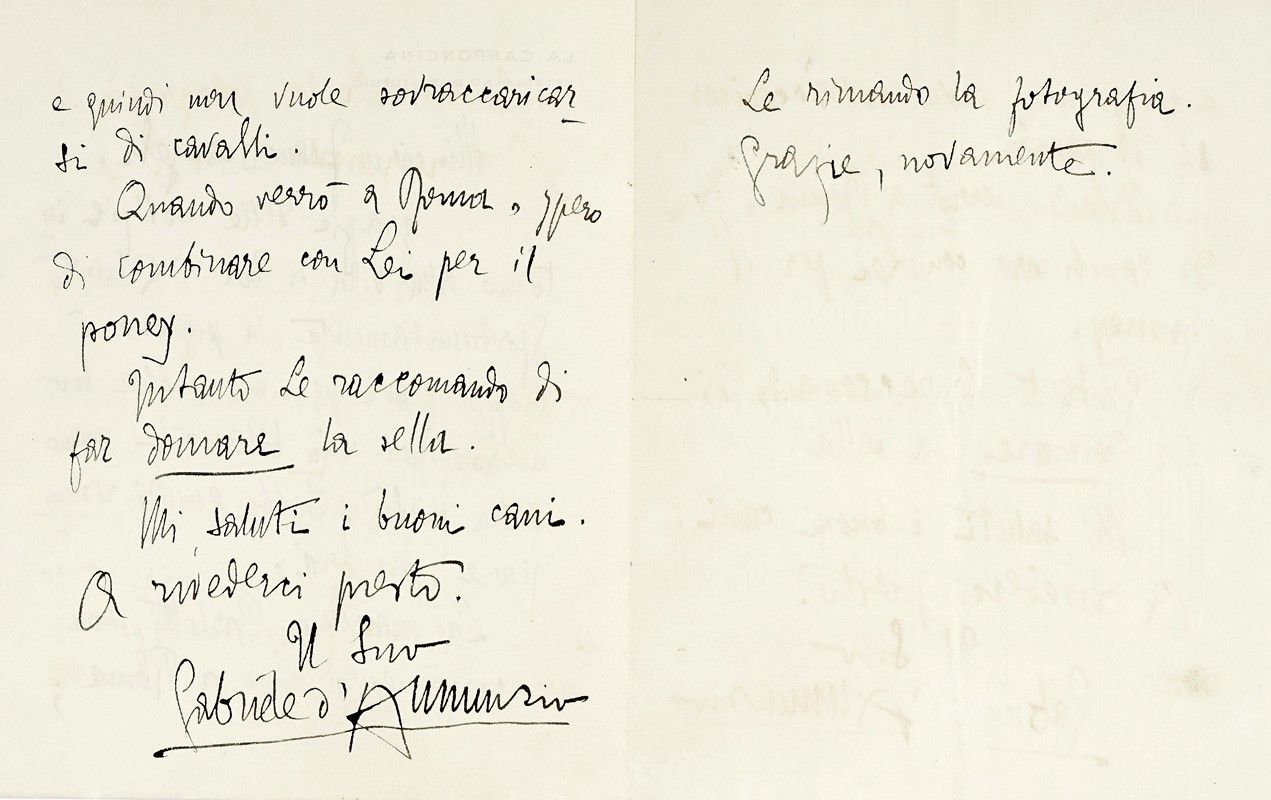 e quindi non vuole sovraccaricar
si di cavalli.
Quando verrò a Roma, spero
di combinare con Lei per il
poney.
Intanto Le raccomando di
far domare la sella.
Mi saluti i buoni cani.
A rivederci presto.
Il Suo
Gabriele d'Annunzio
Le rimando la fotografia.
Grazie, novamente.
LA CAPPONCINA,